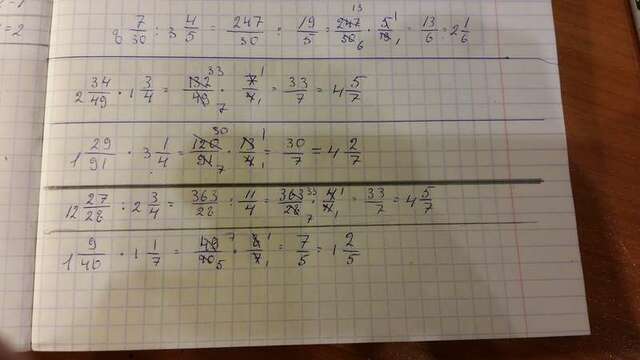 = 2
8 7/30 : 3 4/5 = 247/30 : 19/5 = 247/30 13 6 · 5/19 1 1 = 13/6 = 2 1/6
2 34/49 · 1 3/4 = 132/49 33 7 · 7/4 1 1 = 33/7 = 4 5/7
1 29/91 · 3 1/4 = 120/91 30 7 · 13/4 1 1 = 30/7 = 4 2/7
12 27/28 : 2 3/4 = 363/28 : 11/4 = 363/28 33 7 · 4/11 1 1 = 33/7 = 4 5/7
1 9/40 · 1 1/7 = 49/40 7 5 · 8/7 1 1 = 7/5 = 1 2/5